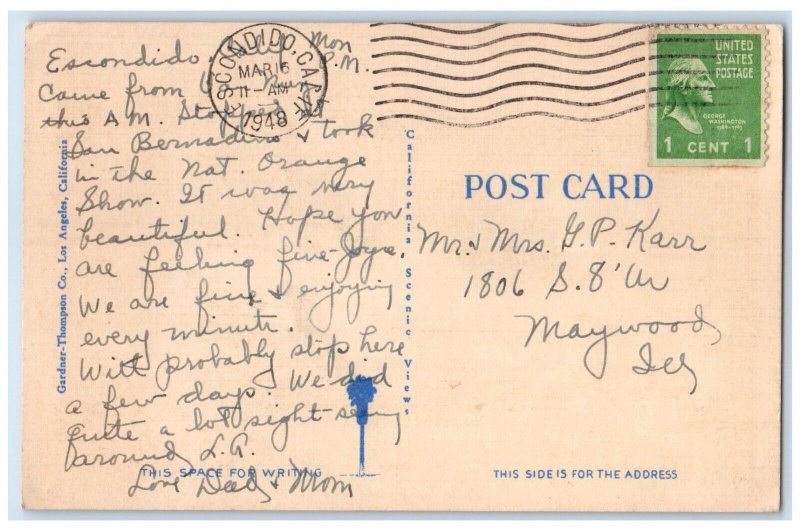 Escondido, Calif Mon
P.M.
Came from
this A M. Stopped at
San Bernadino & took
in the Nat. Orange
Show. It was very
beautiful. Hope you
are feeling fine Joyce.
We are fine & enjoying
every minute.
Will probably stop here
a few days. We did
quite a lot sight-seeing
around L.A.
Love Dad & Mom
THIS SPACE FOR WRITING
Gardner-Thompson Co., Los Angeles, California
California Scenic Views
ESCONDIDO, CALIF.
MAR 16
11 - AM
1948
UNITED
STATES
POSTAGE
GEORGE
WASHINGTON
1789-1797
1 CENT 1
POST CARD
Mr & Mrs. G. P. Karr
1806 S. 8' Av
Maywood,
Ill
THIS SIDE IS FOR THE ADDRESS